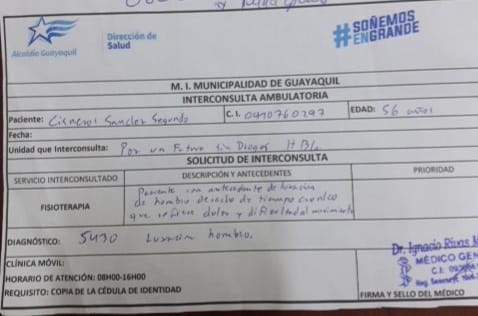 Alcaldía Guayaquil
Dirección de
Salud
#SOÑEMOS
ENGRANDE
M. I. MUNICIPALIDAD DE GUAYAQUIL
INTERCONSULTA AMBULATORIA
Paciente: Cisneros Sanchez Segundo C.I. 0910760297 EDAD: 56 años
Fecha:
Unidad que Interconsulta: Por un Futuro sin Drogas
SOLICITUD DE INTERCONSULTA
SERVICIO INTERCONSULTADO DESCRIPCIÓN Y ANTECEDENTES PRIORIDAD
Paciente con antecedente de luxación
FISIOTERAPIA de hombro derecho de tiempo crónico
que refiere dolor y dificultad al movimiento
DIAGNÓSTICO: S430 Luxación hombro.
CLÍNICA MÓVIL:
HORARIO DE ATENCIÓN: 08H00-16H00
REQUISITO: COPIA DE LA CÉDULA DE IDENTIDAD
Dr. Ignacio Rivas
MÉDICO GEN
C.I.
FIRMA Y SELLO DEL MÉDICO